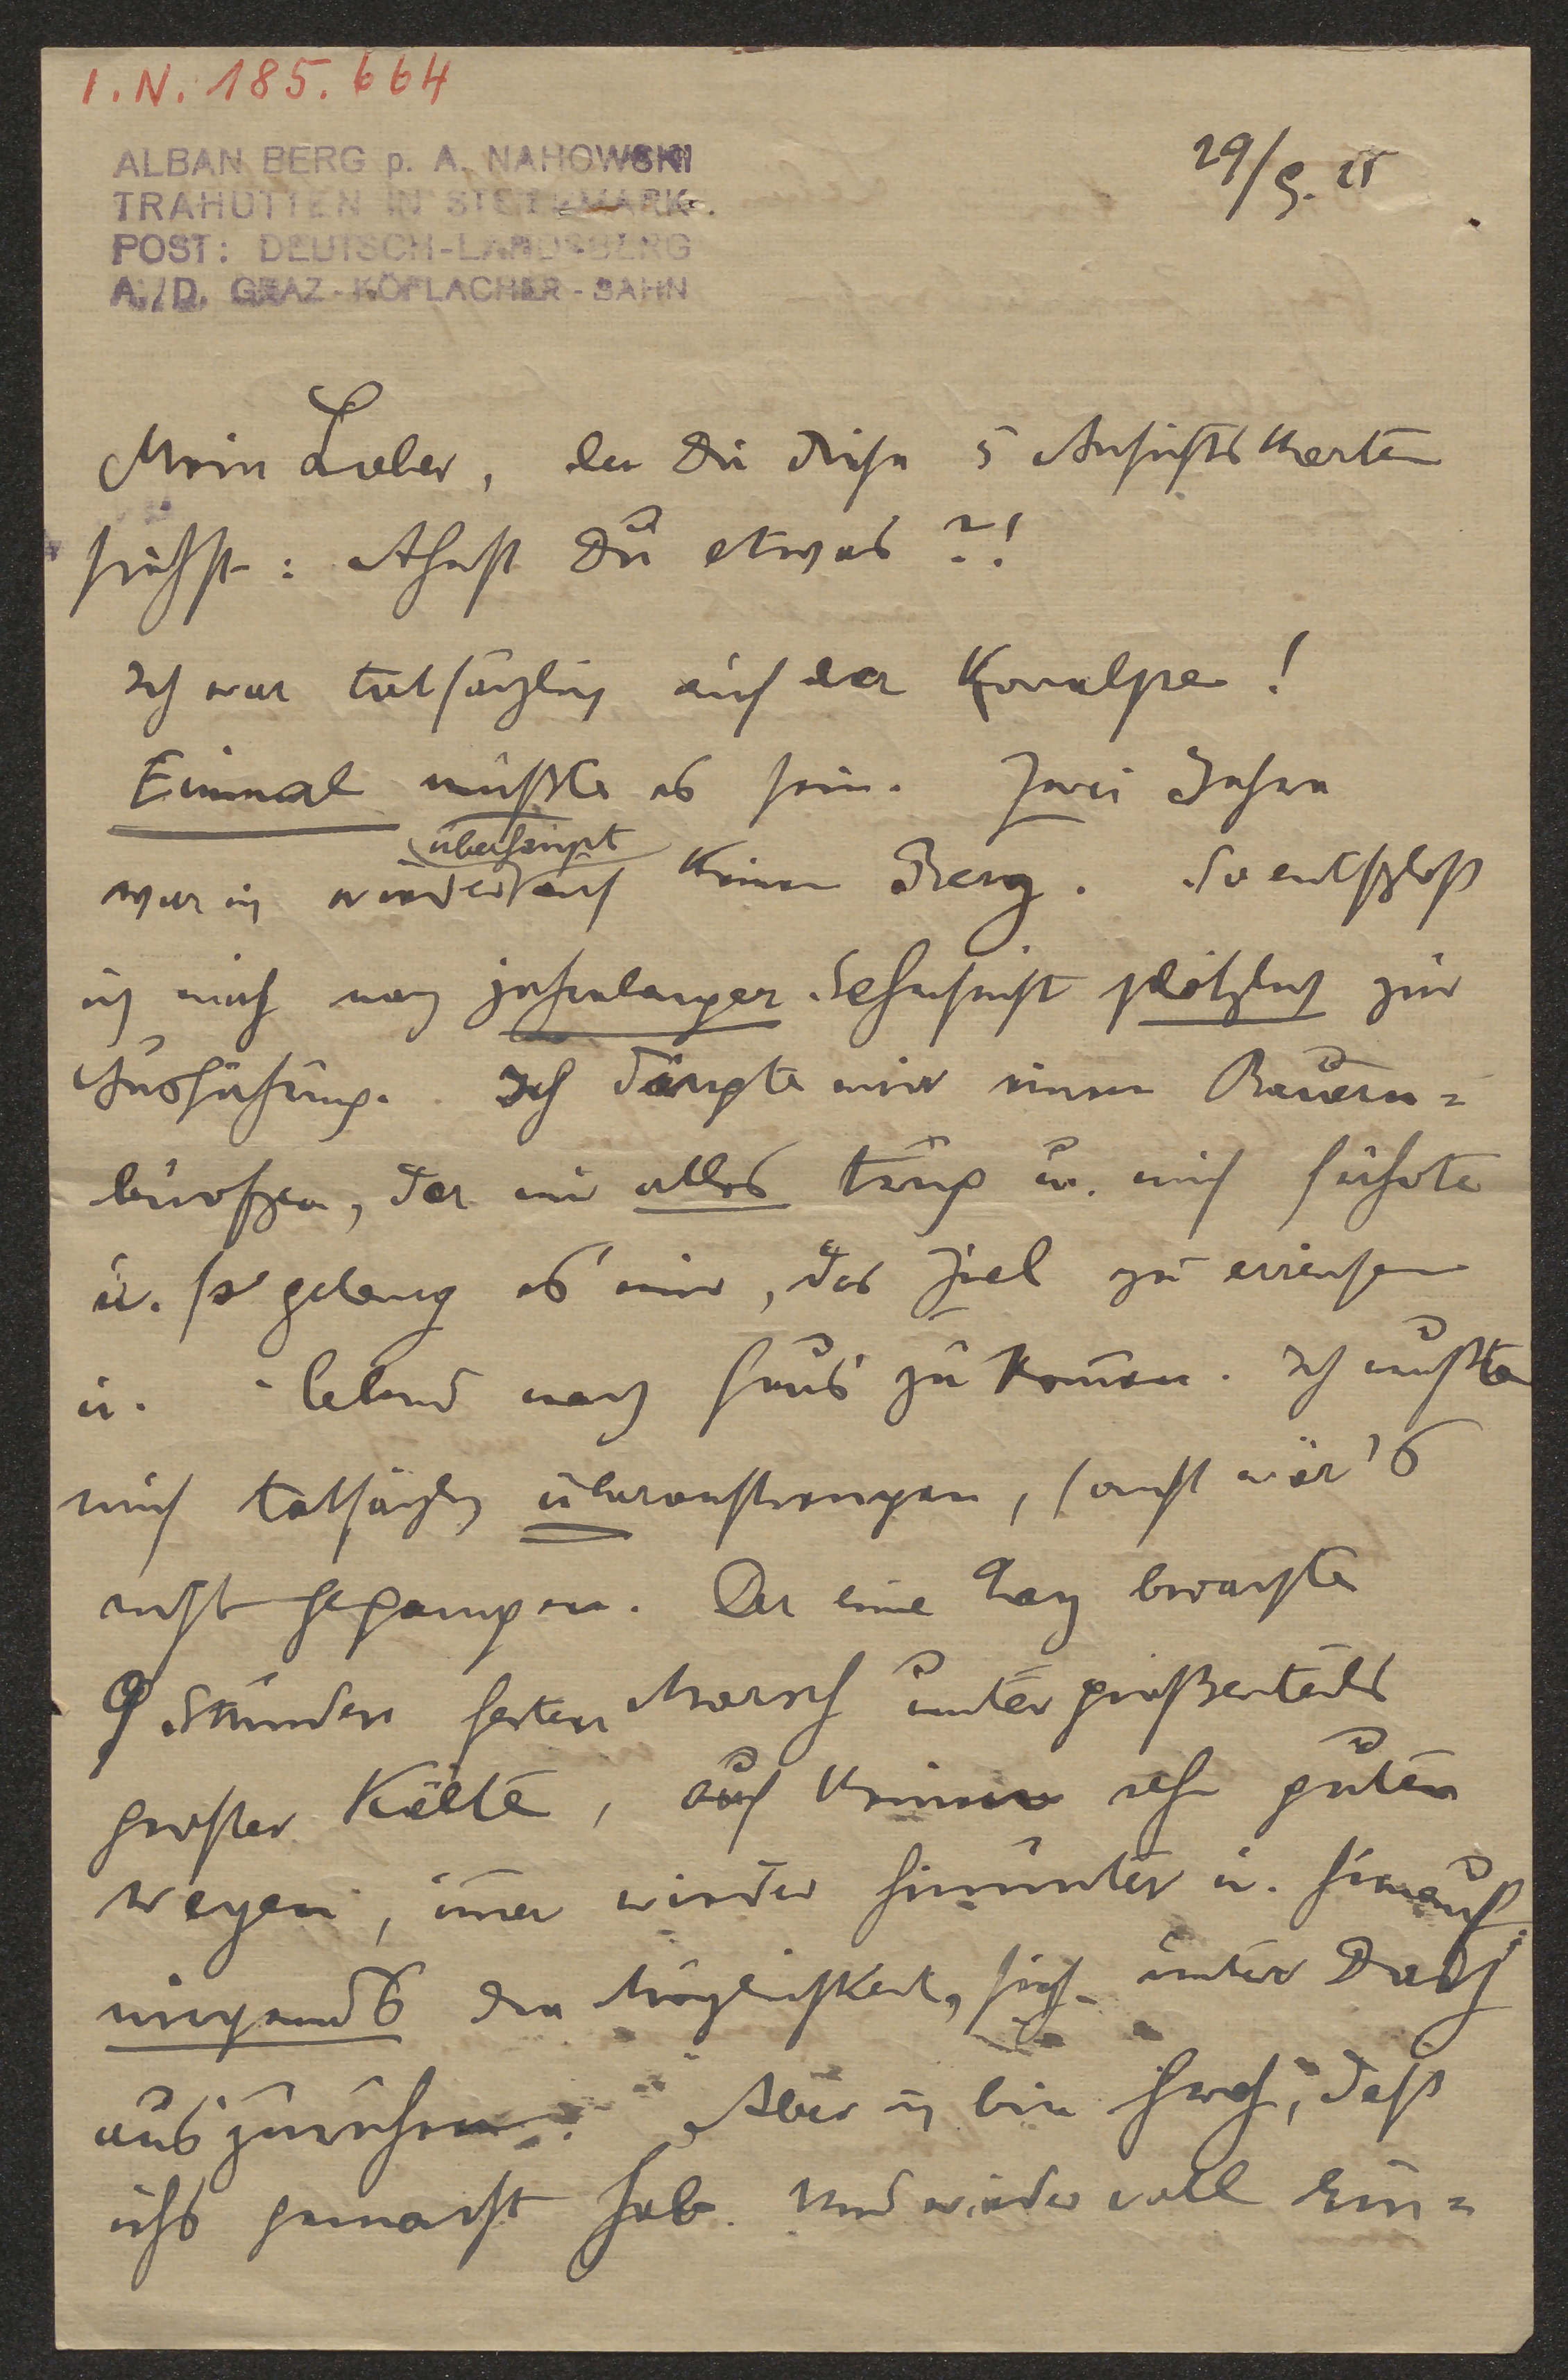 I.N. 185.664
ALBAN BERG p. A. NAHOWSKI
TRAHÜTTEN IN STEIERMARK.
POST: DEUTSCH-LANDSBERG
A./D. GRAZ-KÖFLACHER-BAHN
29/9. 25
Mein Lieber, da Du diese 5 Ansichtskarten
siehst: Ahnst Du etwas?!
Ich war tatsächlich auf der Koralpe!
Einmal mußte es sein. Zwei Jahre
war ich wieder überhaupt auf keinem Berg. So entschloß
ich mich nach jahrelanger Sehnsucht plötzlich zur
Ausführung. Ich dangte mir einen Bauern=
burschen, der mir alles trug u. mich führte
u. so gelang es mir, das Ziel zu erreichen
u. lebend nach Haus zu kom̄en. Ich mußte
mich tatsächlich überanstrengen, sonst wär's
nicht gegangen. Der eine Tag brachte
9 Stunden harten Marsch unter größtenteils
großer Kälte, auf keinen sehr guten
Wegen, im̄er wieder hinunter u. hinauf,
nirgends die Möglichkeit, sich unter Dach
auszuruhen. Aber ich bin froh, daß
ichs gemacht hab. Und wieder voll Ein=